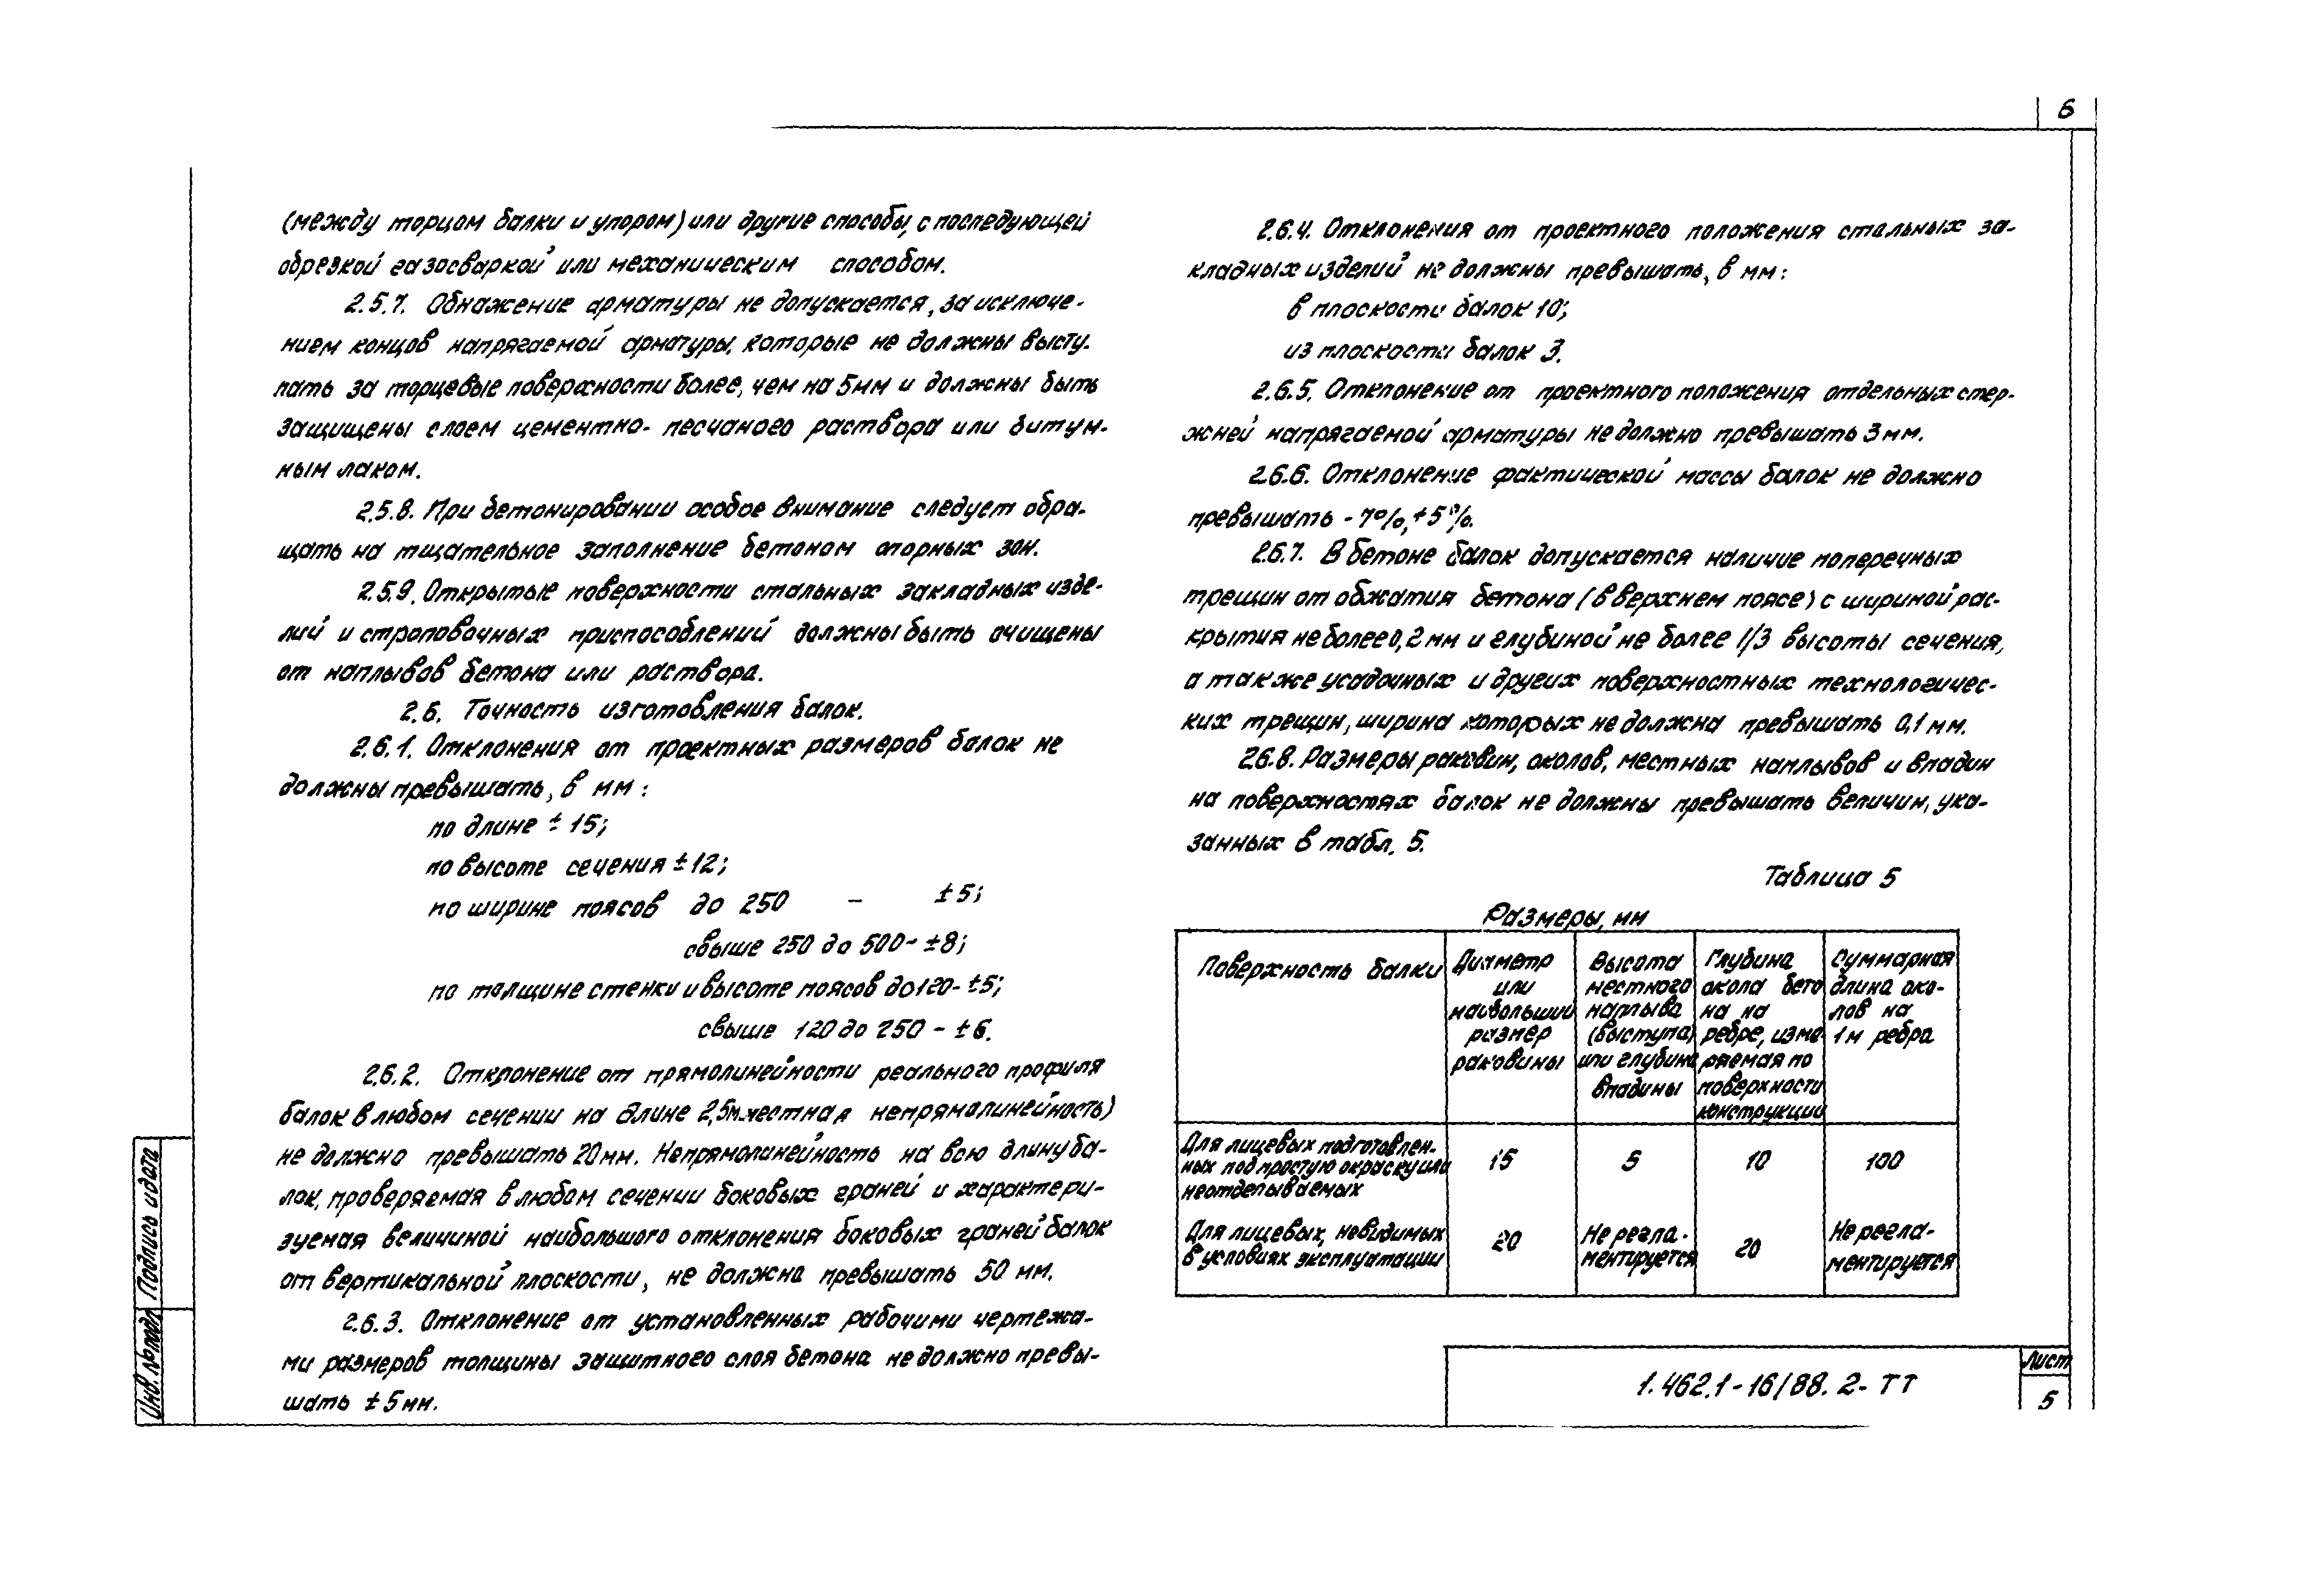 6
(между торцом балки и упором) или другие способы, с последующей
обрезкой газосваркой или механическим способом.
2.5.7. Обнажение арматуры не допускается, за исключе-
нием концов напрягаемой арматуры, которые не должны высту-
пать за торцевые поверхности более, чем на 5мм и должны быть
защищены слоем цементно-песчаного раствора или битум-
ным лаком.
2.5.8. При бетонировании особое внимание следует обра-
щать на тщательное заполнение бетоном опорных зон.
2.5.9. Открытые поверхности стальных закладных изде-
лий и строповочных приспособлений должны быть очищены
от наплывов бетона или раствора.
2.6. Точность изготовления балок.
2.6.1. Отклонения от проектных размеров балок не
должны превышать, в мм:
по длине ± 15;
по высоте сечения ±12;
по ширине поясов до 250 - ±5;
свыше 250 до 500- ±8;
по толщине стенки и высоте поясов до120- ±5;
свыше 120 до 250 - ±6.
2.6.2. Отклонение от прямолинейности реального профиля
балок в любом сечении на длине 2,5м(местная непрямолинейность)
не должно превышать 20мм. Непрямолинейность на всю длину ба-
лок, проверяемая в любом сечении боковых граней и характери-
зуемая величиной наибольшого отклонения боковых граней балок
от вертикальной плоскости, не должна превышать 50 мм.
2.6.3. Отклонение от установленных рабочими чертежа-
ми размеров толщины защитного слоя бетона не должно превы-
шать ±5мм.
2.6.4. Отклонения от проектного положения стальных за-
кладных изделий не должны превышать, в мм:
в плоскости балок 10;
из плоскости балок 3.
2.6.5. Отклонение от проектного положения отдельных стер-
жней напрягаемой арматуры не должно превышать 3мм.
2.6.6. Отклонение фактической массы балок не должно
превышать -7%,+5%.
2.6.7. В бетоне балок допускается наличие поперечных
трещин от обжатия бетона (в верхнем поясе) с шириной рас-
крытия не более 0,2мм и глубиной не более 1/3 высоты сечения,
а также усадочных и других поверхностных технологичес-
ких трещин, ширина которых не должна превышать 0,1мм.
2.6.8. Размеры раковин, околов, местных наплывов и впадин
на поверхностях балок не должны превышать величин, ука-
занных в табл. 5.
Таблица 5
Размеры, мм
Поверхность балки
Диаметр
или
наибольший
размер
раковины
Высота
местного
наплыва
(выступа)
или глубина
впадины
Глубина
окола бето
на на
ребре, изме-
ряемая по
поверхности
конструкции
Суммарная
длина око-
лов на
1м ребра
Для лицевых подготовлен-
ных под простую окраску или
неотделываемых
15
5
10
100
Для лицевых, невидимых
в условиях эксплуатации
20
Не регла-
ментируется
20
Не регла-
ментируется
1.462.1-16/88.2-ТТ
Лист
5
Подпись и дата
Инв. № подл